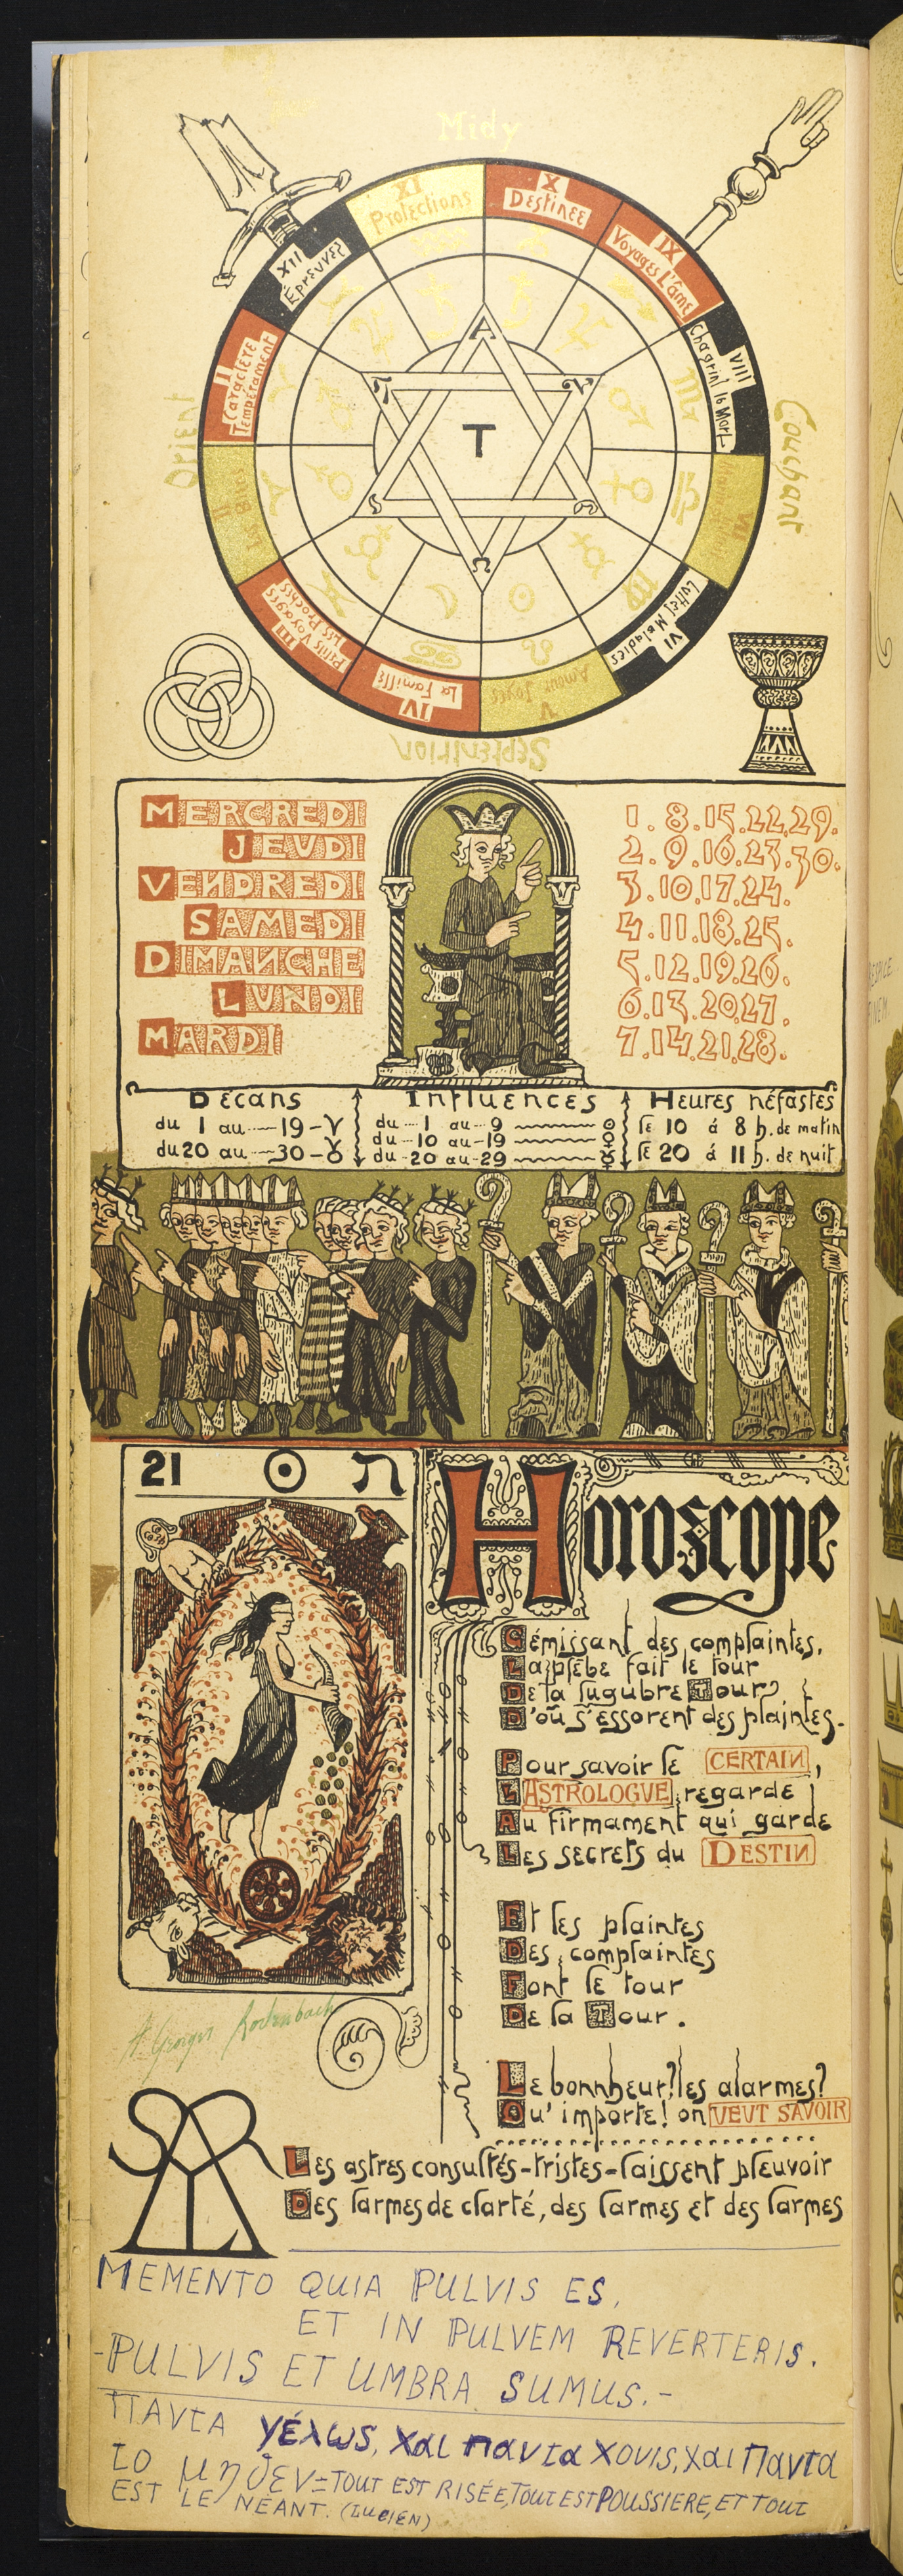 Midy
X
Destinee
XI
Protections
IX
Voyages L'âme
XII
Épreuves
VIII
Chagrin la Mort
II
Caractere
Tempérament
Orient
Couchant
A
T
Ω
II
Les Biens
VI
III
Petits Voyages
Les Proches
VI
Luttes Maladies
IV
La Famille
V
Amour Joyes
Septentrion
MERCREDI 1.8.15.22.29.
JEUDI 2.9.16.23.30.
VENDREDI 3.10.17.24.
SAMEDI 4.11.18.25.
DIMANCHE 5.12.19.26.
LUNDI 6.13.20.27.
MARDI 7.14.21.28.
Décans Influences Heures néfastes
du 1 au 19-♈ du 1 au 9 ☉ le 10 á 8 h. de matin
du 20 au 30-♉ du 10 au 19 ♀ le 20 á 11 h. de nuit
du 20 au 29 ☿
21 ☉ ת
Horoscope
Gémissant des complaintes,
La plèbe fait le tour
De la lugubre Tour
D'où s'essorent des plaintes.
Pour savoir le CERTAIN,
L'ASTROLOGUE regarde
Au firmament qui garde
Les secrets du DESTIN
Et les plaintes
Des complaintes
Font le tour
De la Tour.
Le bonheur? les alarmes?
Qu'importe! on VEUT SAVOIR
Les astres consultés-tristes-laissent pleuvoir
Des larmes de clarté, des larmes et des larmes
A Georges Rodenbach
MEMENTO QUIA PULVIS ES,
ET IN PULVEM REVERTERIS.
-PULVIS ET UMBRA SUMUS.-
Παντα γέλως, χαι παντα χονις, χαι Παντα
το μηδεν = TOUT EST RISÉE, TOUT EST POUSSIERE, ET TOUT
EST LE NÉANT. (LUCIEN)